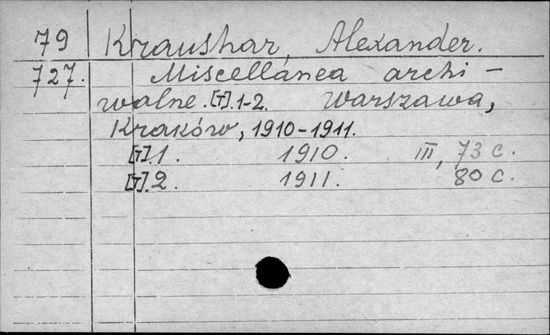 79 Kraushar, Alexander.
727. Miscellanea archi-
walne. [T]. 1-2. Warszawa,
Kraków, 1910-1911.
[T]. 1. 1910. III, 73 c.
[T]. 2. 1911. 80 c.